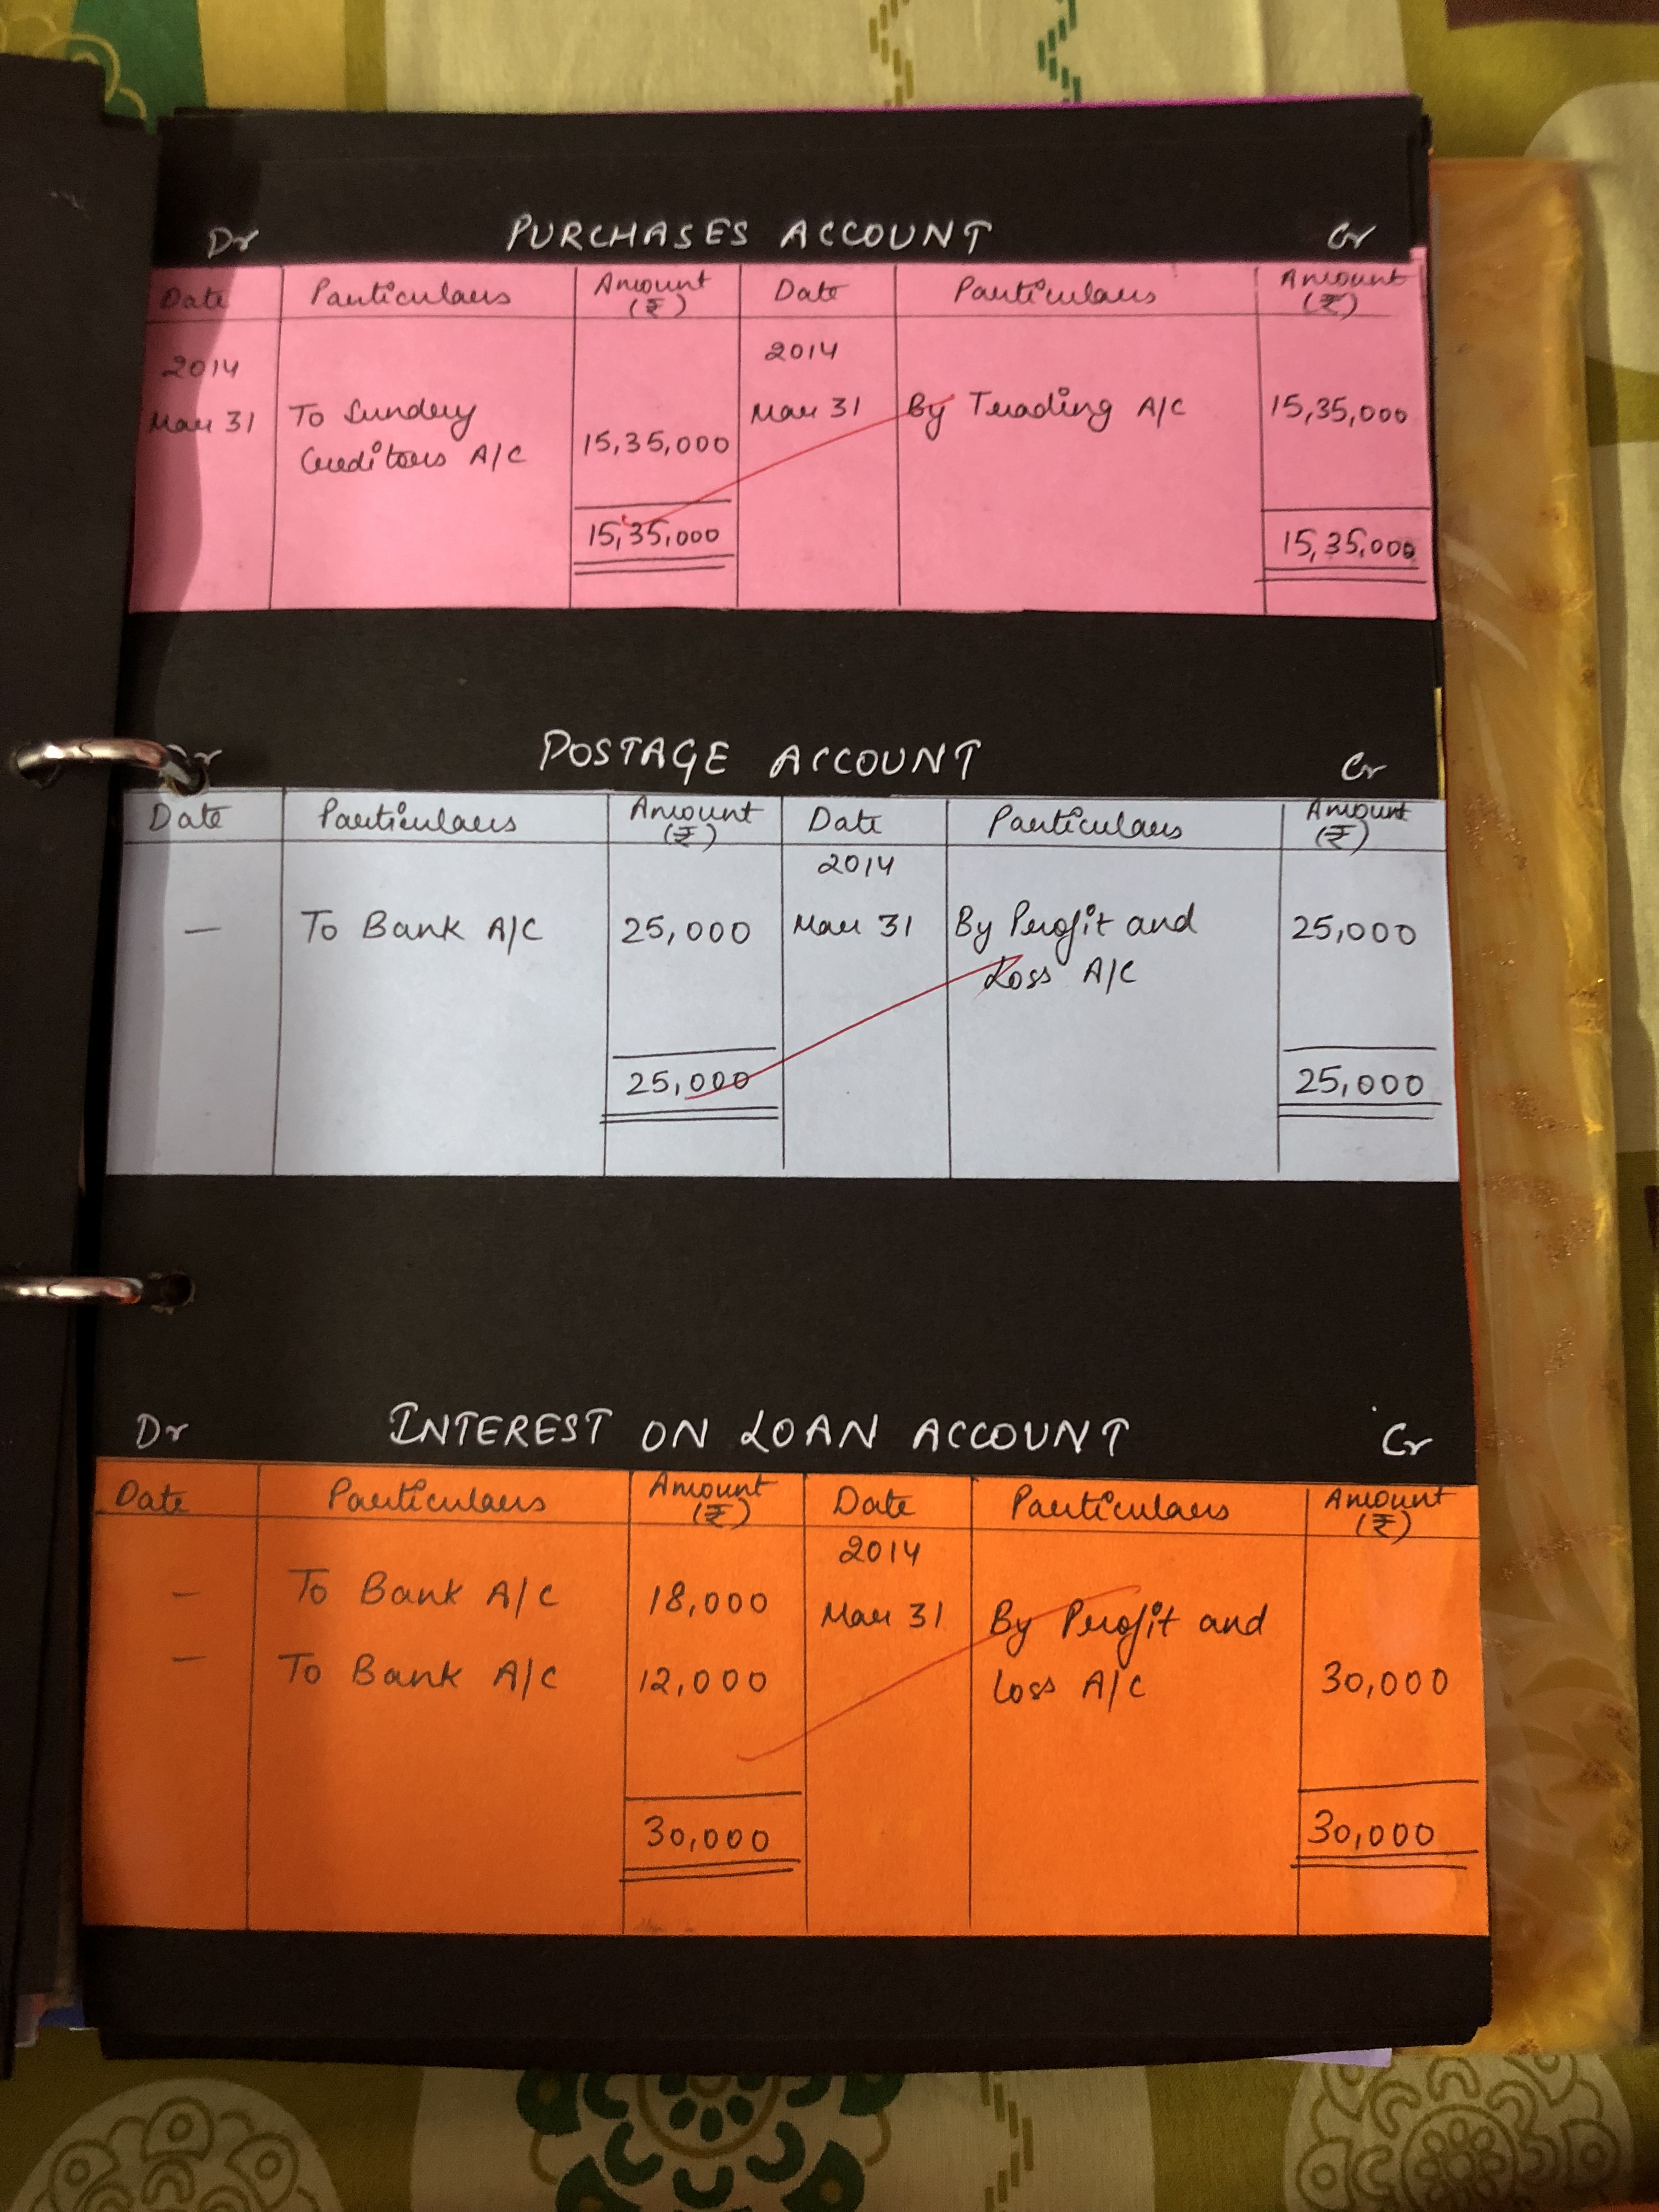 Dr PURCHASES ACCOUNT Cr
Date Particulars Amount (₹) Date Particulars Amount (₹)
2014 2014
Mar 31 To Sundry Creditors A/C 15,35,000 Mar 31 By Trading A/C 15,35,000
15,35,000 15,35,000
POSTAGE ACCOUNT Cr
Date Particulars Amount (₹) Date Particulars Amount (₹)
2014
— To Bank A/C 25,000 Mar 31 By Profit and Loss A/C 25,000
25,000 25,000
Dr INTEREST ON LOAN ACCOUNT Cr
Date Particulars Amount (₹) Date Particulars Amount (₹)
2014
– To Bank A/C 18,000 Mar 31 By Profit and
– To Bank A/C 12,000 Loss A/C 30,000
30,000 30,000